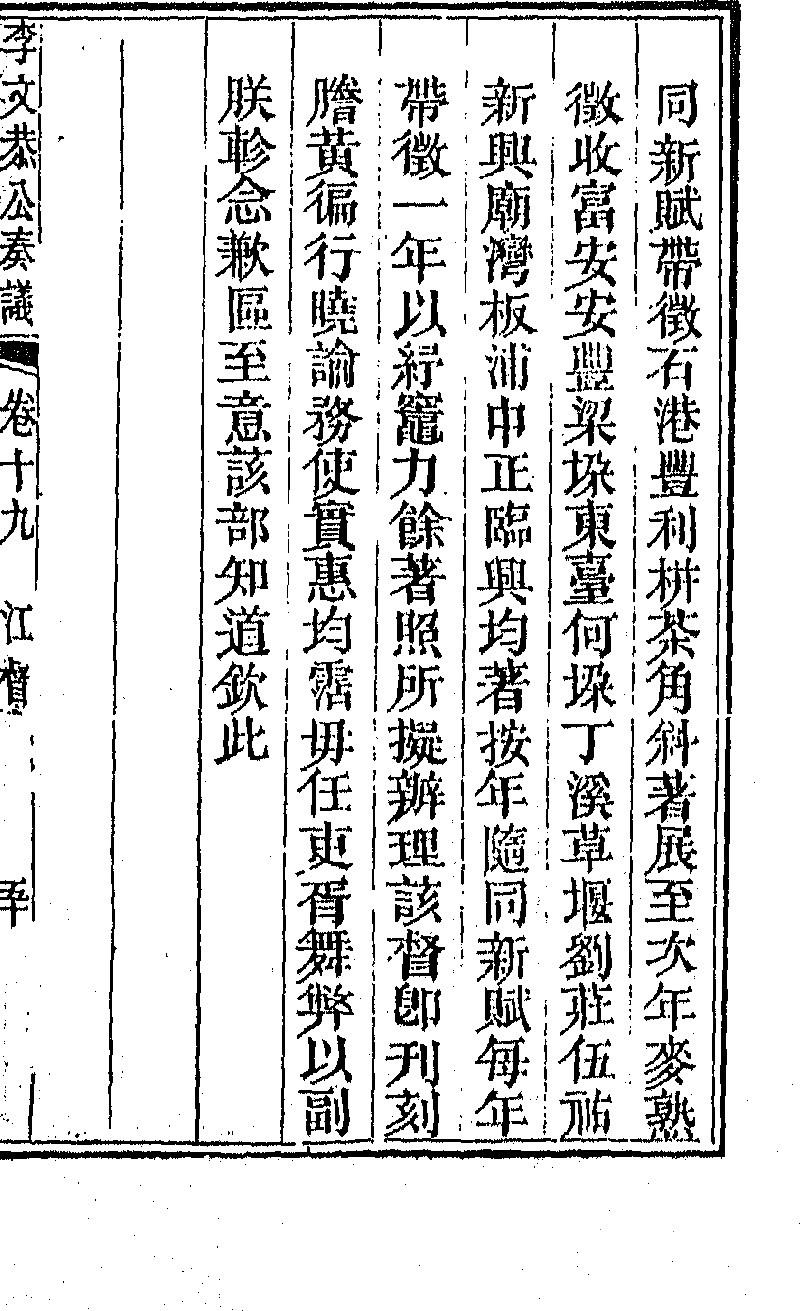 同新賦帶徵石港豐利栟茶角斜著展至次年麥熟
徵收富安安豐梁垛東臺何垛丁溪草堰劉莊伍祐
新興廟灣板浦中正臨興均著按年隨同新賦每年
帶徵一年以紓竈力餘著照所擬辦理該督卽刊刻
謄黃徧行曉諭務使實惠均霑毋任吏胥舞弊以副
朕軫念歉區至意該部知道欽此
李文恭公奏議 卷十九 江督